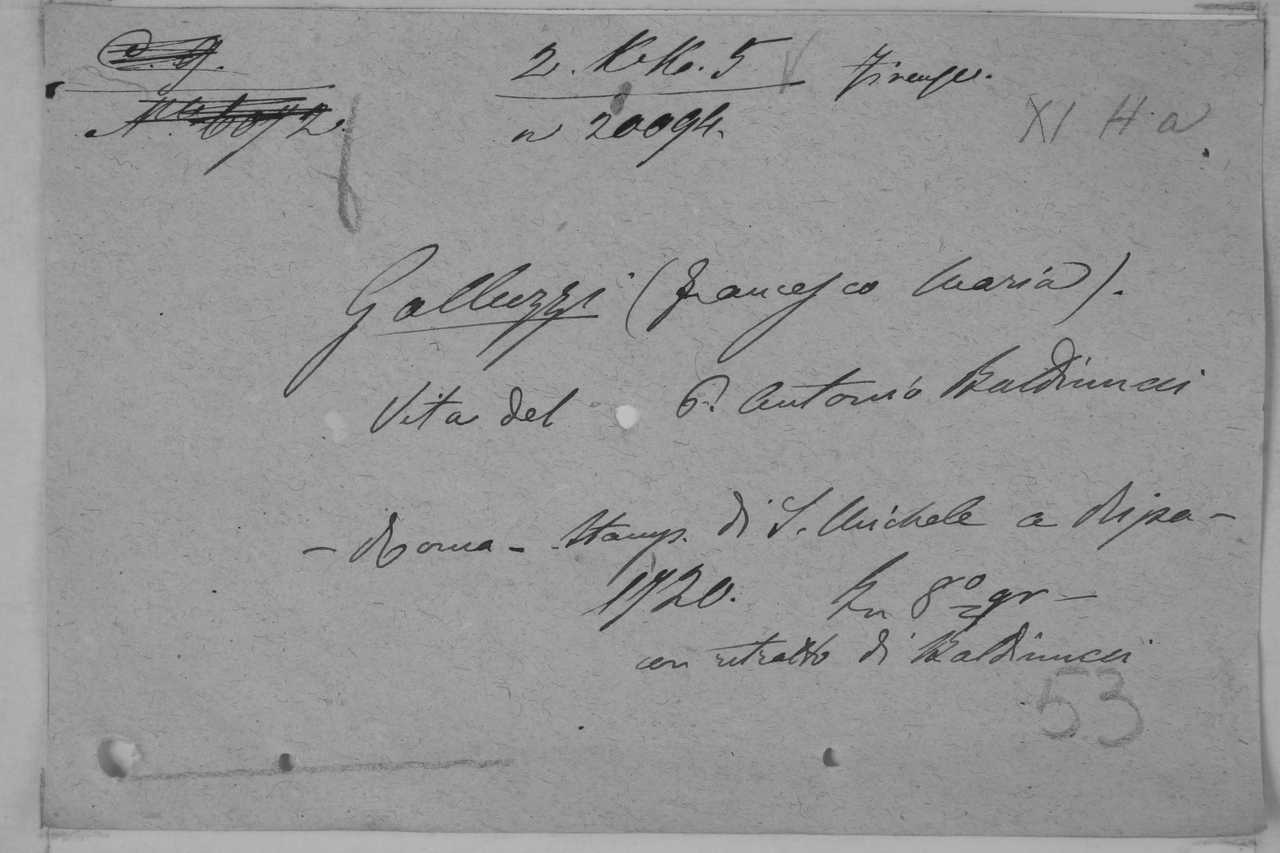 2. K.K. 5 Firenze.
n 20094.
XI H a
Galluzzi (Francesco Maria).
Vita del P. Antonio Baldinucci
- Roma - Stamp. di S. Michele a Ripa -
1720. In 8º gr -
con ritratto di Baldinucci
53